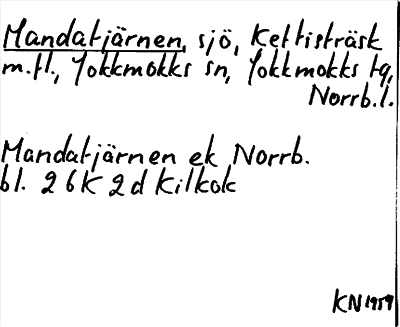 Mandatjärnen, sjö, Kettisträsk
m.fl., Jokkmokks sn, Jokkmokks tg,
Norrb.l.
Mandatjärnen ek Norrb.
bl. 26K 2d Kilkok
KN 1959